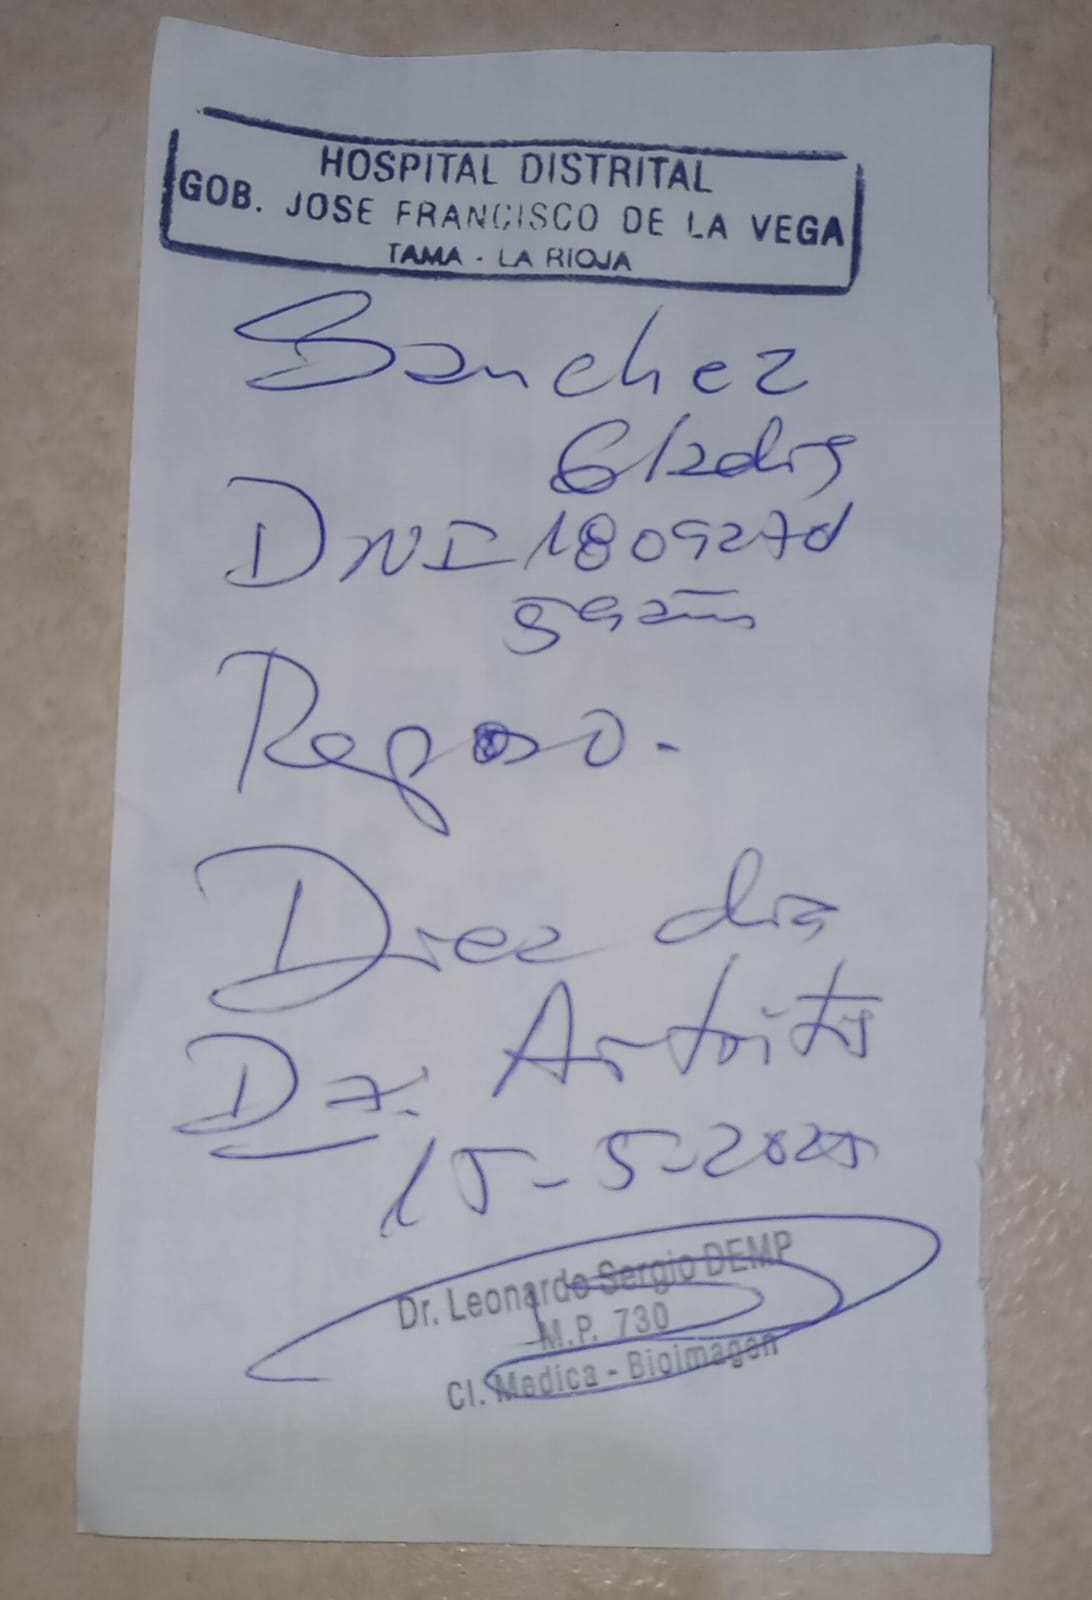 HOSPITAL DISTRITAL
GOB. JOSE FRANCISCO DE LA VEGA
TAMA - LA RIOJA
Sanchez
Gladis
DNI
59 años
Reposo.-
Diez dia
Dx. Artritis
15-5-2025
Dr. Leonardo Sergio DEMP
M.P. 730
Cl. Medica - Bioimagen